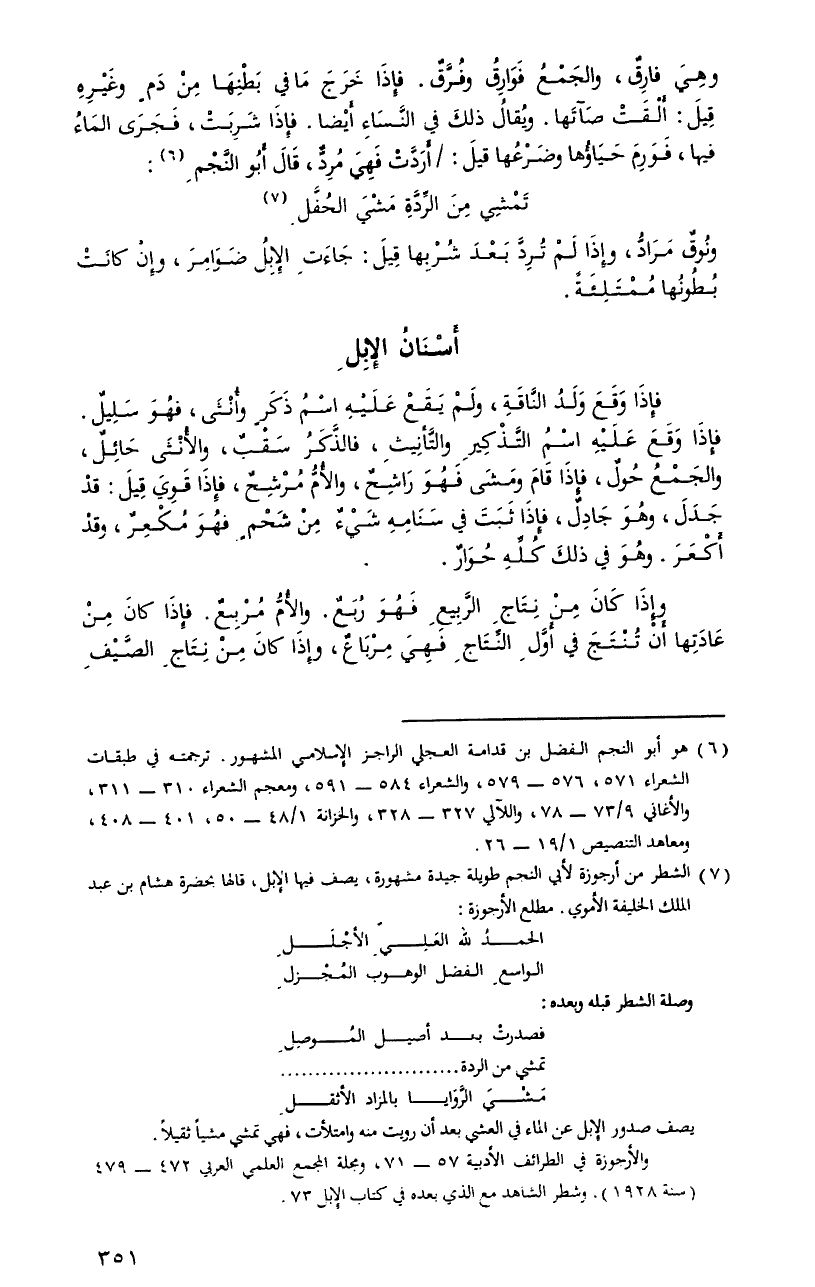 وهِيَ فارِقٌ، والجَمْعُ فَوَارِقُ وفُرَّقٌ. فإذَا خَرَجَ مَا في بَطْنِهَا مِنْ دَمٍ وغَيْرِهِ
قِيلَ: أَلْقَتْ صآتَها. ويُقالُ ذلكَ في النَّسَاءِ أَيْضا. فإذَا شَرِبَتْ، فَجَرَى المَاءُ
فيها، فَوَرِمَ حَيَاؤها وضَرْعُها قيلَ: / أَرَدَّتْ فَهِيَ مُرِدٌّ، قالَ أَبُو النَّجْمِ (٦):
تَمْشِي مِنَ الرِّدَّةِ مَشْيَ الحُفَّلِ (٧)
ونُوقٌ مَرَادُّ، وإذَا لَمْ تُرِدَّ بَعْدَ شُرْبِها قِيلَ: جَاءَتِ الإِبِلُ ضَوَامِرَ، وإنْ كانَتْ
بُطُونُها مُمْتَلِئَةً.
أَسْنَانُ الإِبِلِ
فإذَا وَقَعَ وَلَدُ النَّاقَةِ، ولَمْ يَقَعْ عَلَيْهِ اسْمُ ذَكَرٍ وأُنْثَى، فهُوَ سَلِيلٌ.
فإذَا وَقَعَ عَلَيْهِ اسْمُ التَّذْكِيرِ والتَّأنِيثِ، فالذَّكَرُ سَقْبٌ، والأُنْثَى حَائِلٌ،
والجَمْعُ حُولٌ، فإذَا قَامَ ومَشَى فَهُوَ رَاشِحٌ، والأُمُّ مُرْشِحٌ، فإذَا قَوِيَ قِيلَ: قدْ
جَدَلَ، وهُوَ جَادِلٌ، فإذَا نَبَتَ في سَنَامِهِ شَيْءٌ مِنْ شَحْمٍ فهُوَ مُكْعِرٌ، وقدْ
أَكْعَرَ. وهُوَ في ذلكَ كُلِّهِ حُوَارٌ.
وإذَا كَانَ مِنْ نِتَاجِ الرَّبِيعِ فَهُوَ رُبَعٌ. والأُمُّ مُرْبِعٌ. فإذَا كانَ مِنْ
عَادَتِها أَنْ تُنْتَجَ في أوَّلِ النِّتَاجِ فَهِيَ مِرْبَاعٌ، وإذَا كانَ مِنْ نِتَاجِ الصَّيْفِ
(٦) هو أبو النجم الفضل بن قدامة العجلي الراجز الإسلامي المشهور. ترجمته في طبقات
الشعراء ٥٧١، ٥٧٦ ــ ٥٧٩، والشعراء ٥٨٤ ــ ٥٩١، ومعجم الشعراء ٣١٠ ــ ٣١١،
والأغاني ٧٣/٩ ــ ٧٨، واللآلي ٣٢٧ ــ ٣٢٨، والخزانة ٤٨/١ ــ ٥٠، ٤٠١ ــ ٤٠٨،
ومعاهد التنصيص ١٩/١ ــ ٢٦.
(٧) الشطر من أرجوزة لأبي النجم طويلة جيدة مشهورة، يصف فيها الإبل، قالها بحضرة هشام بن عبد
الملك الخليفة الأموي. مطلع الأرجوزة:
الحمدُ لله العَلِيِّ الأجْلَلِ
الواسعِ الفضل الوهوب المُجْزلِ
وصلة الشطر قبله وبعده:
فصدرتْ بعد أصيل المُوصِلِ
تمشي من الردة..........................
مَشْيَ الرَّوَايا بالمزاد الأثقلِ
يصف صدور الإبل عن الماء في العشي بعد أن رويت منه وامتلأت، فهي تمشي مشياً ثقيلاً.
والأرجوزة في الطرائف الأدبية ٥٧ ــ ٧١، ومجلة المجمع العلمي العربي ٤٧٢ ــ ٤٧٩
(سنة ١٩٢٨). وشطر الشاهد مع الذي بعده في كتاب الإبل ٧٣.
٣٥١